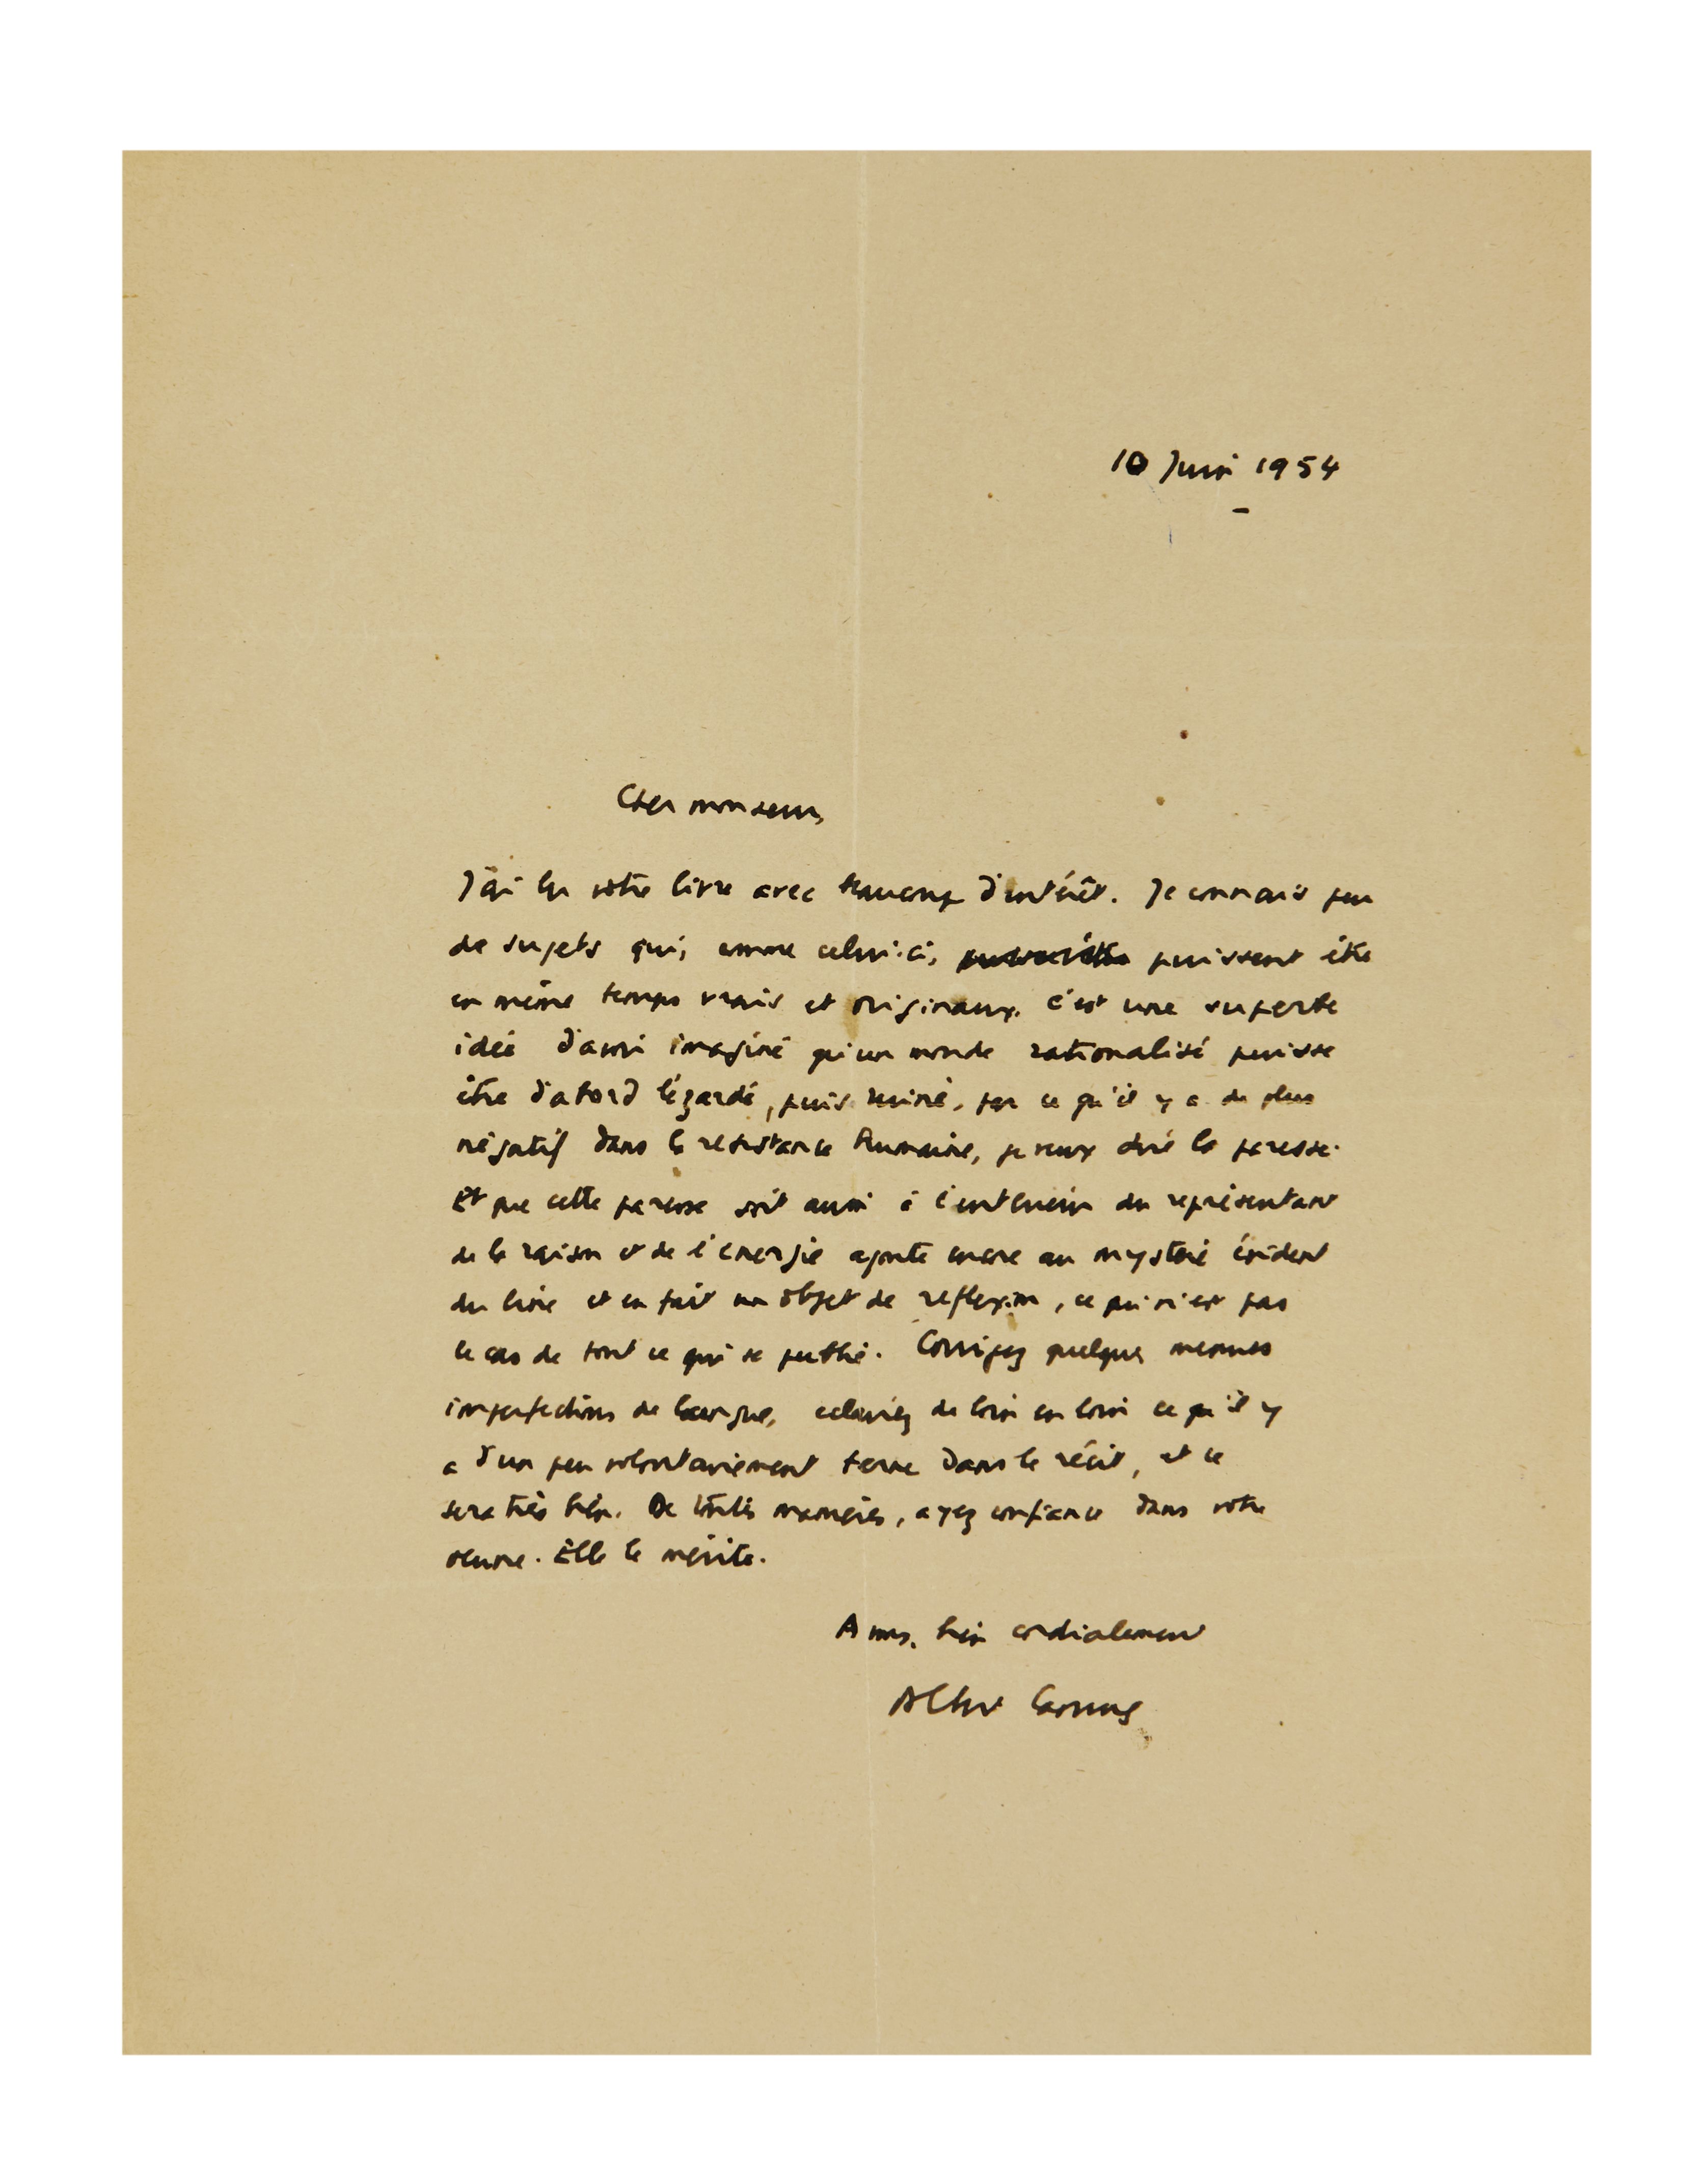 10 Juin 1954
Cher monsieur,
J'ai lu votre livre avec beaucoup d'intérêt. Je connais peu
de sujets qui, comme celui-ci, puissent être
en même temps vrais et originaux. C'est une superbe
idée d'avoir imaginé qu'un monde rationalisé puisse
être d'abord lézardé, puis ruiné, par ce qu'il y a de plus
négatif dans la résistance humaine, je veux dire la paresse.
Et que cette paresse soit aussi à l'intérieur du représentant
de la raison et de l'énergie ajoute encore au mystère évident
du livre et en fait un objet de réflexion, ce qui n'est pas
le cas de tout ce qui se publie. Corrigez quelques menues
imperfections de langue, éclairez de loin en loin ce qu'il y
a d'un peu volontairement terne dans le récit, et ce
sera très bien. De toutes manières, ayez confiance dans votre
œuvre. Elle le mérite.
A vous, bien cordialement
Albert Camus